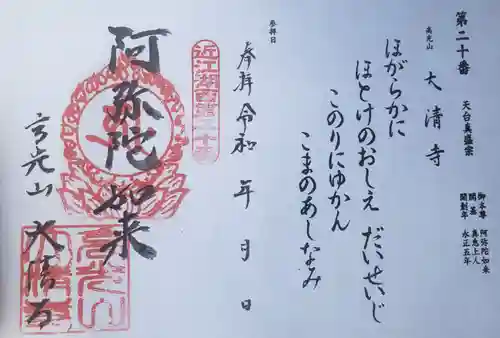 第二十番
天台真盛宗
御本尊 阿弥陀如来
開基 真恵上人
開創年 永正五年
高光山
大清寺
ほがらかに
ほとけのおしえ だいせいじ
このりにゆかん
こまのあしなみ
参拝日
奉拝 令和 年 月 日
近江湖南第二十番
阿弥陀如来
高光山
大清寺